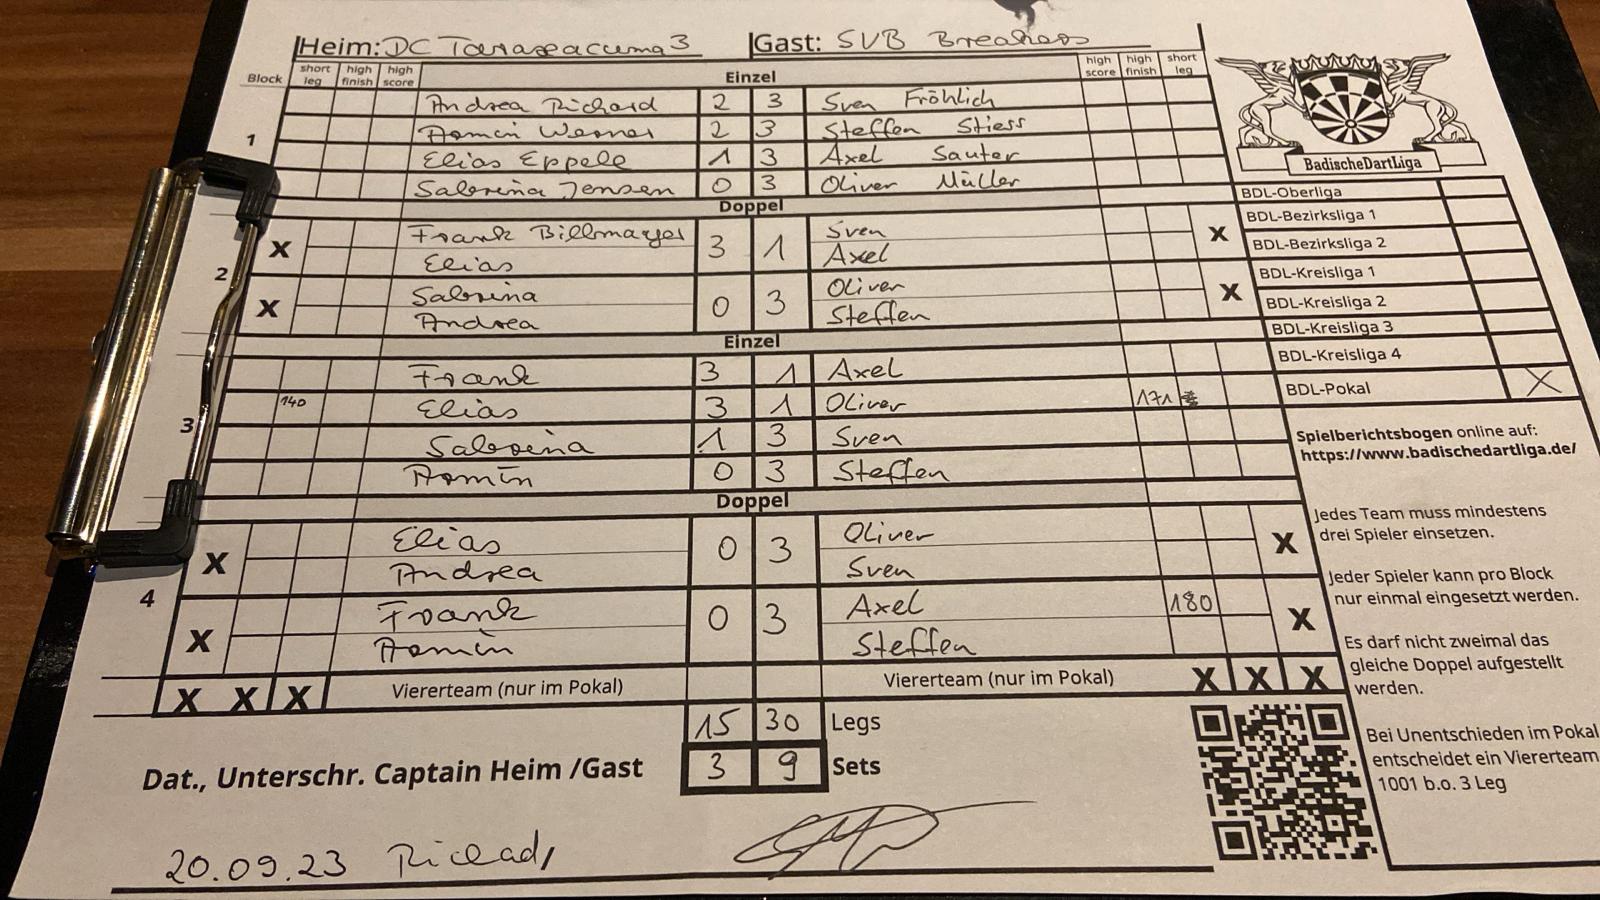 Heim: DC Taraxacuma 3 Gast: SVB Breakers
Block short leg high finish high score Einzel high score high finish short leg
1
Andrea Richard 2 3 Sven Fröhlich
Armin Werner 2 3 Steffen Stiess
Elias Eppele 1 3 Axel Sauter
Sabrina Jensen 0 3 Oliver Müller
Doppel
2
X Frank Billmayer 3 1 Sven X
Elias Axel
X Sabrina 0 3 Oliver X
Andrea Steffen
Einzel
3
Frank 3 1 Axel
140 Elias 3 1 Oliver 171
Sabrina 1 3 Sven
Armin 0 3 Steffen
Doppel
4
X Elias 0 3 Oliver X
Andrea Sven
X Frank 0 3 Axel 180 X
Armin Steffen
X X X Viererteam (nur im Pokal) Viererteam (nur im Pokal) X X X
15 30 Legs
Dat., Unterschr. Captain Heim /Gast 3 9 Sets
20.09.23 Richard
BadischeDartLiga
BDL-Oberliga
BDL-Bezirksliga 1
BDL-Bezirksliga 2
BDL-Kreisliga 1
BDL-Kreisliga 2
BDL-Kreisliga 3
BDL-Kreisliga 4
BDL-Pokal X
Spielberichtsbogen online auf:
https://www.badischedartliga.de/
Jedes Team muss mindestens
drei Spieler einsetzen.
Jeder Spieler kann pro Block
nur einmal eingesetzt werden.
Es darf nicht zweimal das
gleiche Doppel aufgestellt
werden.
Bei Unentschieden im Pokal
entscheidet ein Viererteam
1001 b.o. 3 Leg